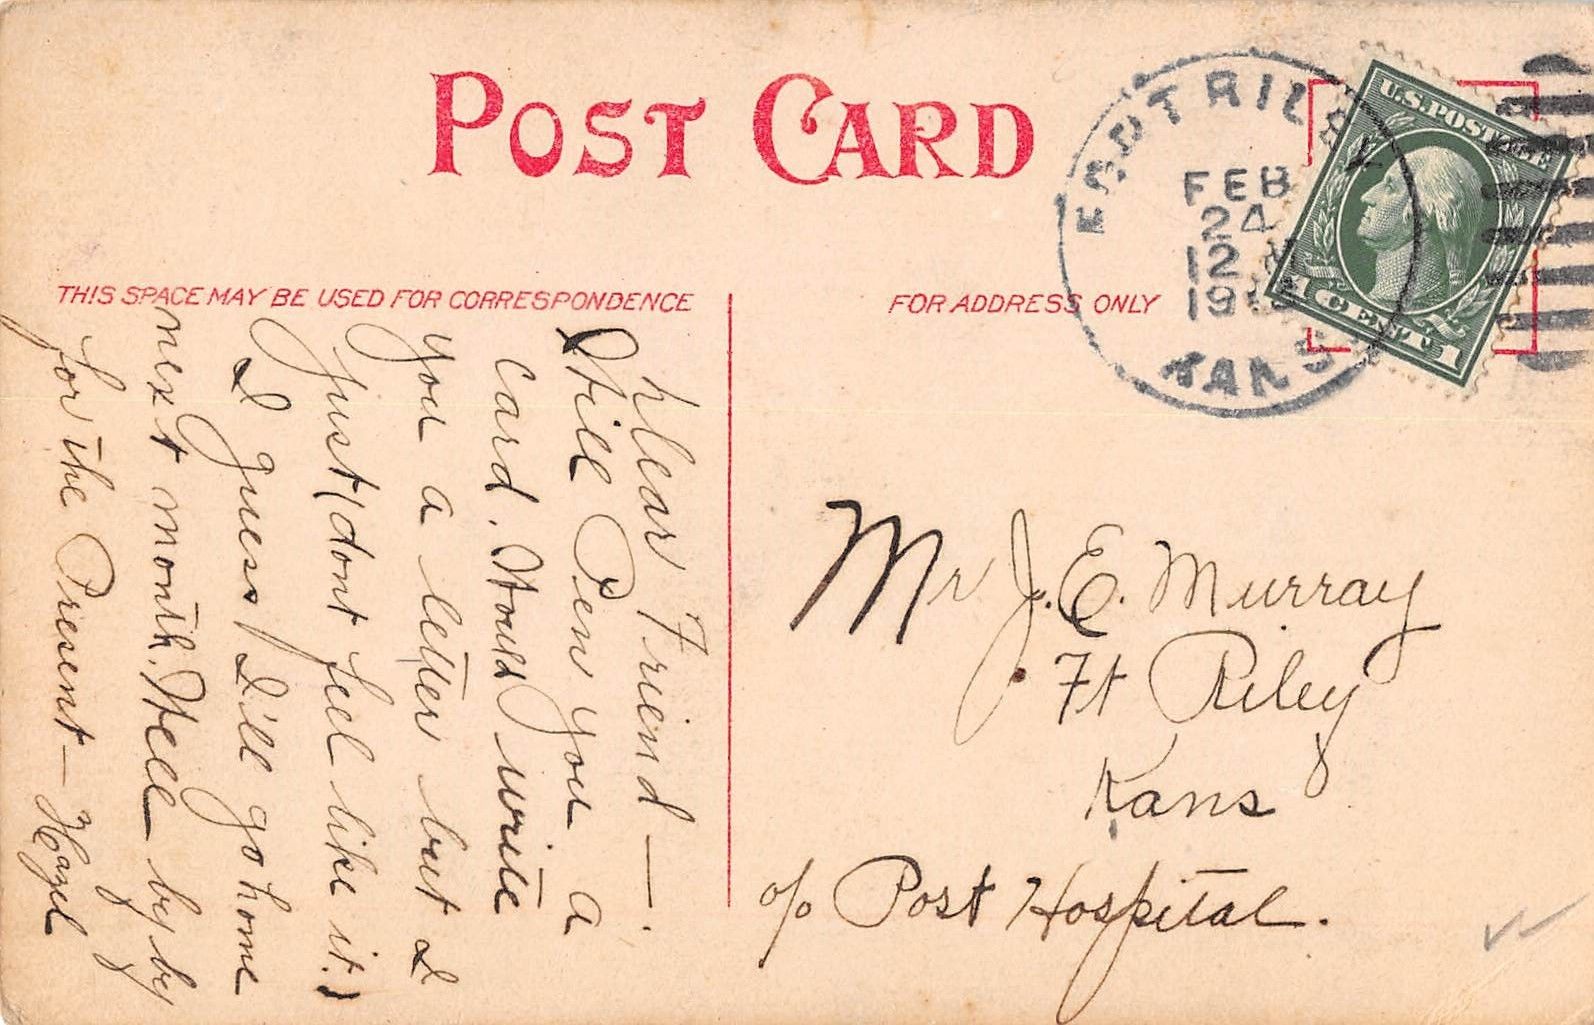 POST CARD
FORT RILEY
FEB
24
12 M
19
KANS.
U.S. POSTAGE
1 CENT 1
THIS SPACE MAY BE USED FOR CORRESPONDENCE
FOR ADDRESS ONLY
Dear Friend —.
Will Pen you a
card. Would write
you a letter but I
just (dont feel like it.)
I guess I'll go home
next month. Well by by
for the Present — Hazel
Mr J. E. Murray
Ft Riley
Kans
c/o Post Hospital.